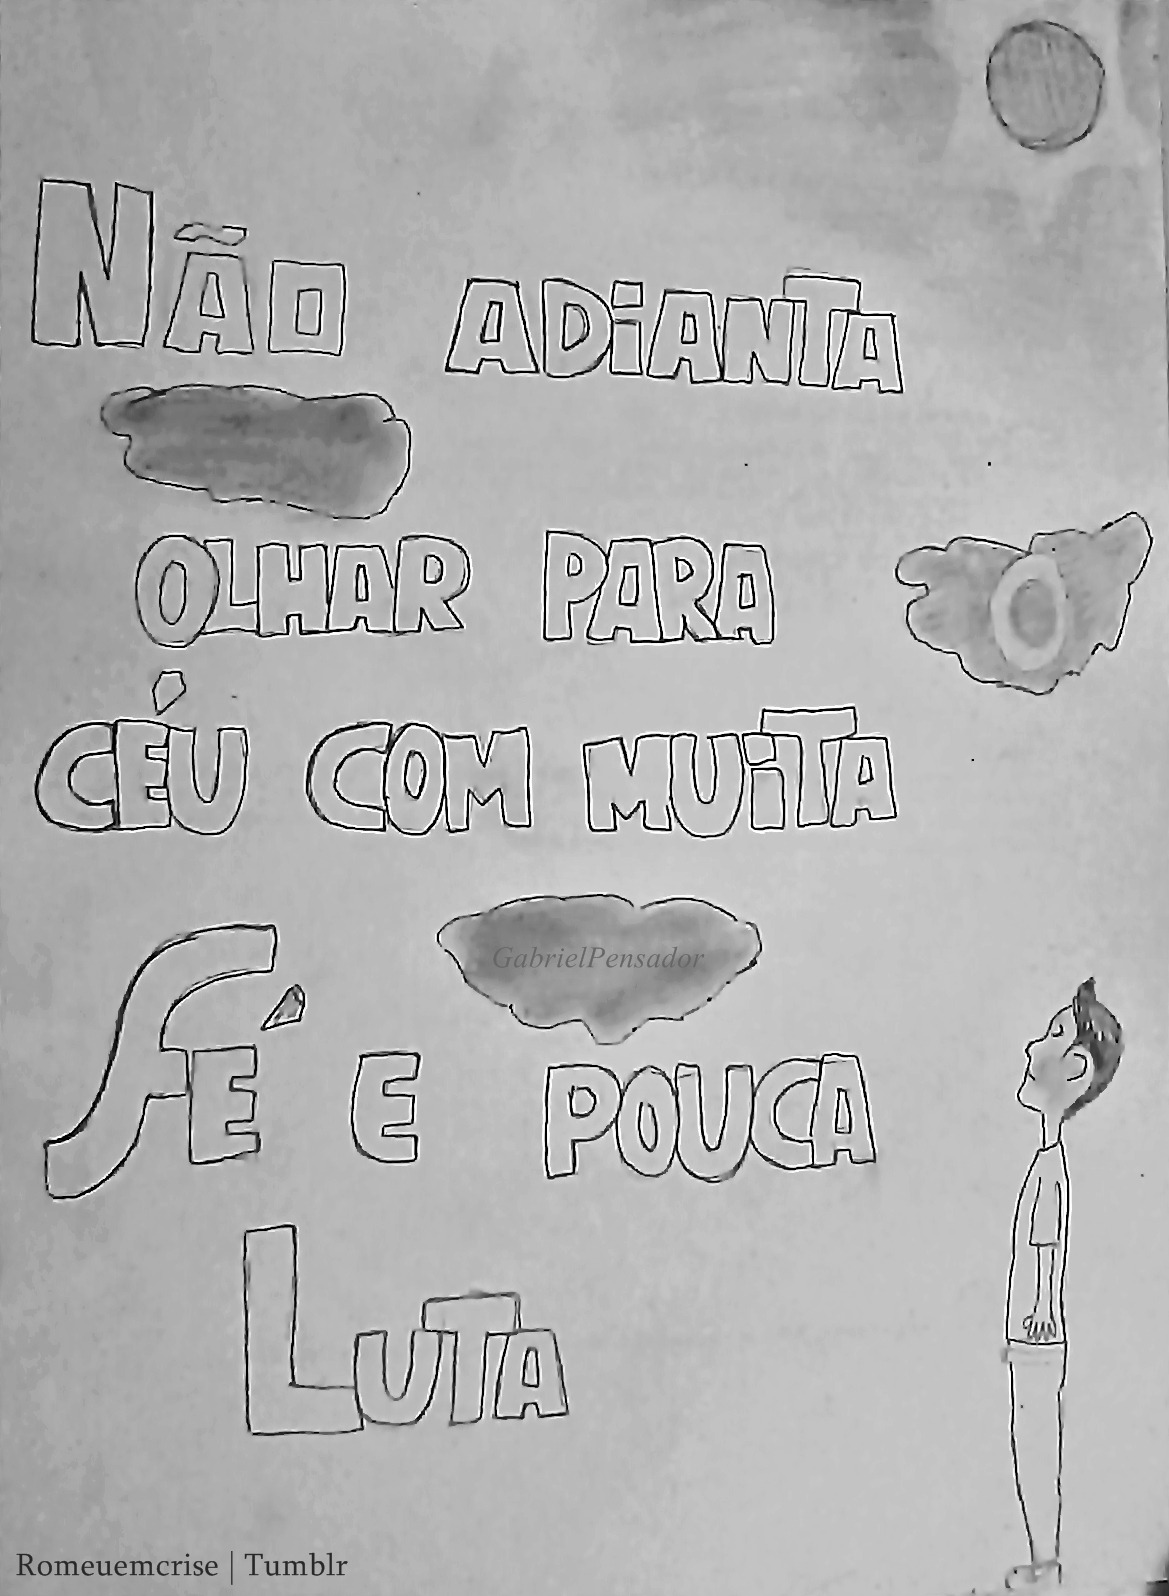 NÃO ADiANTA
OLHAR PARA O
CÉU COM MUiTA
GabrielPensador
FÉ E POUCA
LUTA
Romeuemcrise | Tumblr